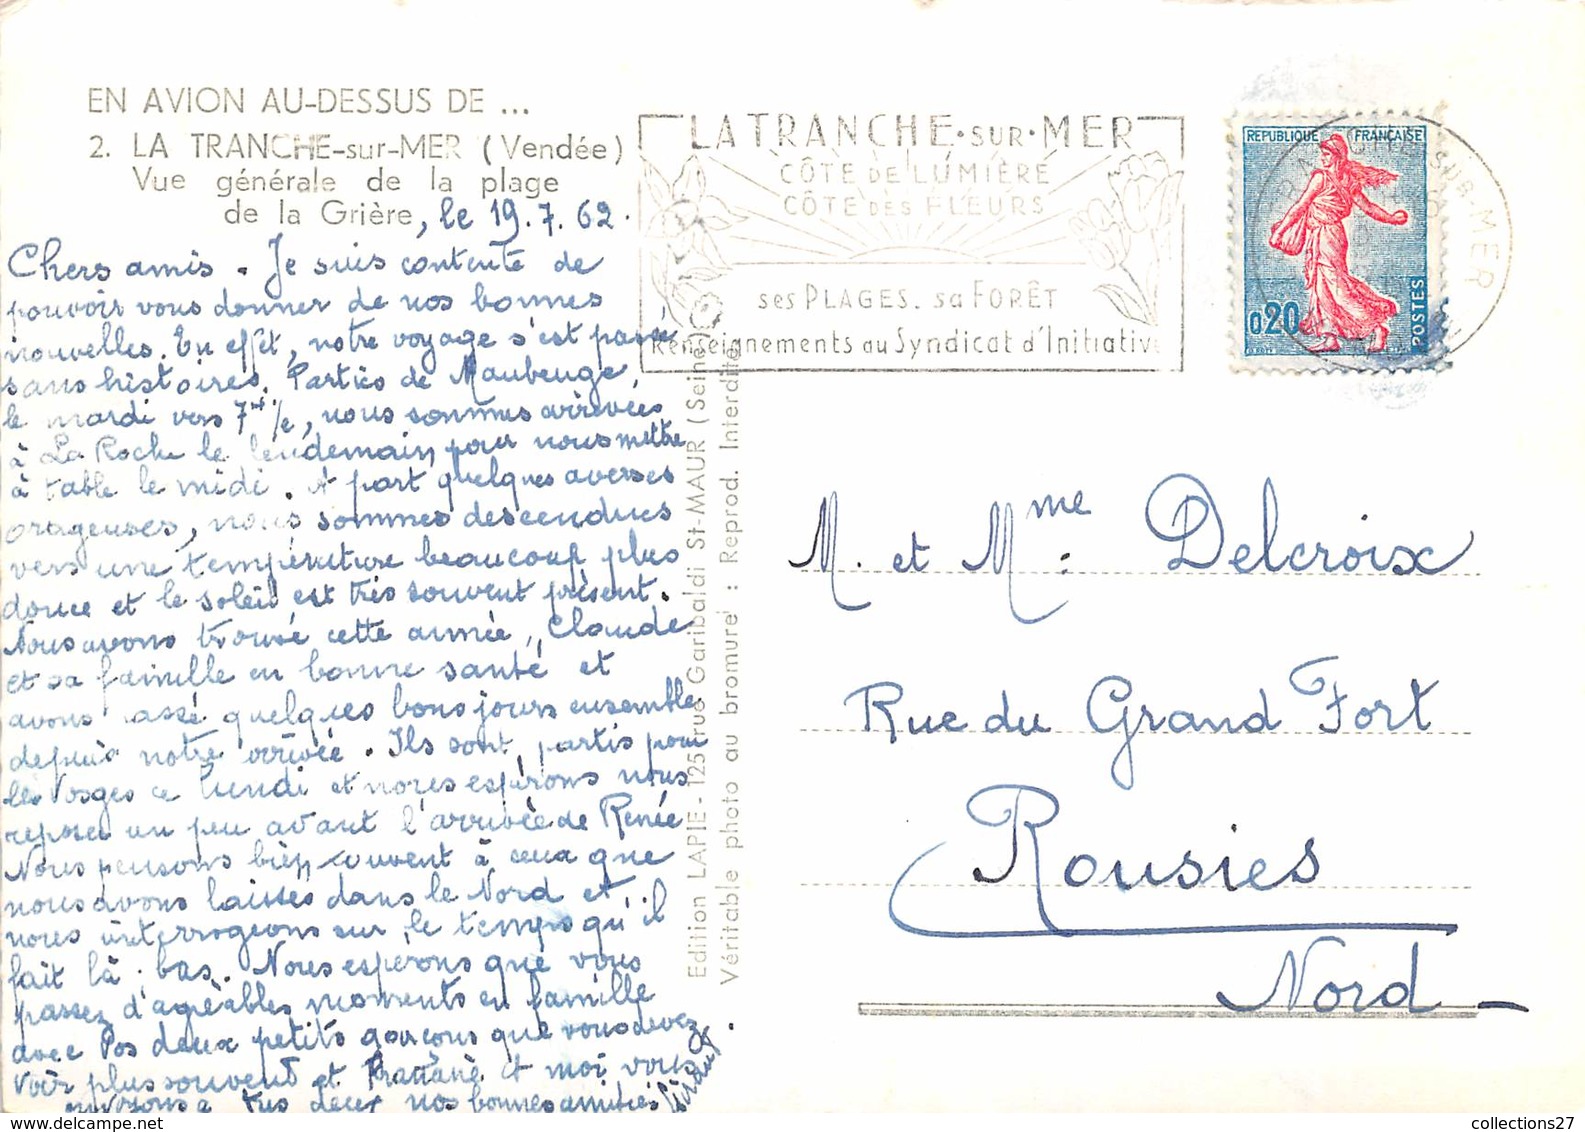 EN AVION AU-DESSUS DE ...
2. LA TRANCHE-sur-MER (Vendée)
Vue générale de la plage
de la Grière, le 19.7.62.
Chers amis. Je suis contente de
pouvoir vous donner de nos bonnes
nouvelles. En effêt, notre voyage s'est passé
sans histoires. Parties de Maubeuge,
le mardi vers 7 , nous sommes arrivées
à La Roche le lendemain pour nous mettre
à table le midi. A part quelques averses
orageuses, nous sommes descendues
vers une température beaucoup plus
douce et le soleil est très souvent présent.
Nous avons trouvé cette année, Claude
et sa famille en bonne santé et
avons passé quelques bons jours ensemble
depuis notre arrivée. Ils sont partis pour
les Vosges ce lundi et nous espérons nous
reposer un peu avant l'arrivée de Renée
Nous pensons bien souvent à ceux que
nous avons laissés dans le Nord et
nous interrogeons sur le temps qu'il
fait là-bas. Nous esperons que vous
passez d'agréables moments en famille
avec vos deux petits garçons que vous devez
voir plus souvent et et moi vous
envoyons à tous deux nos bonnes amitiés
LA TRANCHE·SUR·MER
CÔTE DE LUMIÈRE
CÔTE DES FLEURS
ses PLAGES. sa FORÊT
Renseignements au Syndicat d'Initiative
REPUBLIQUE FRANÇAISE
0,20
POSTES
SUR-MER
Edition LAPIE - 125, rue Garibaldi St-MAUR (Seine)
Véritable photo au bromure : Reprod. Interdite
M. et Mme Delcroix
Rue du Grand Fort
Rousies
Nord
collections27